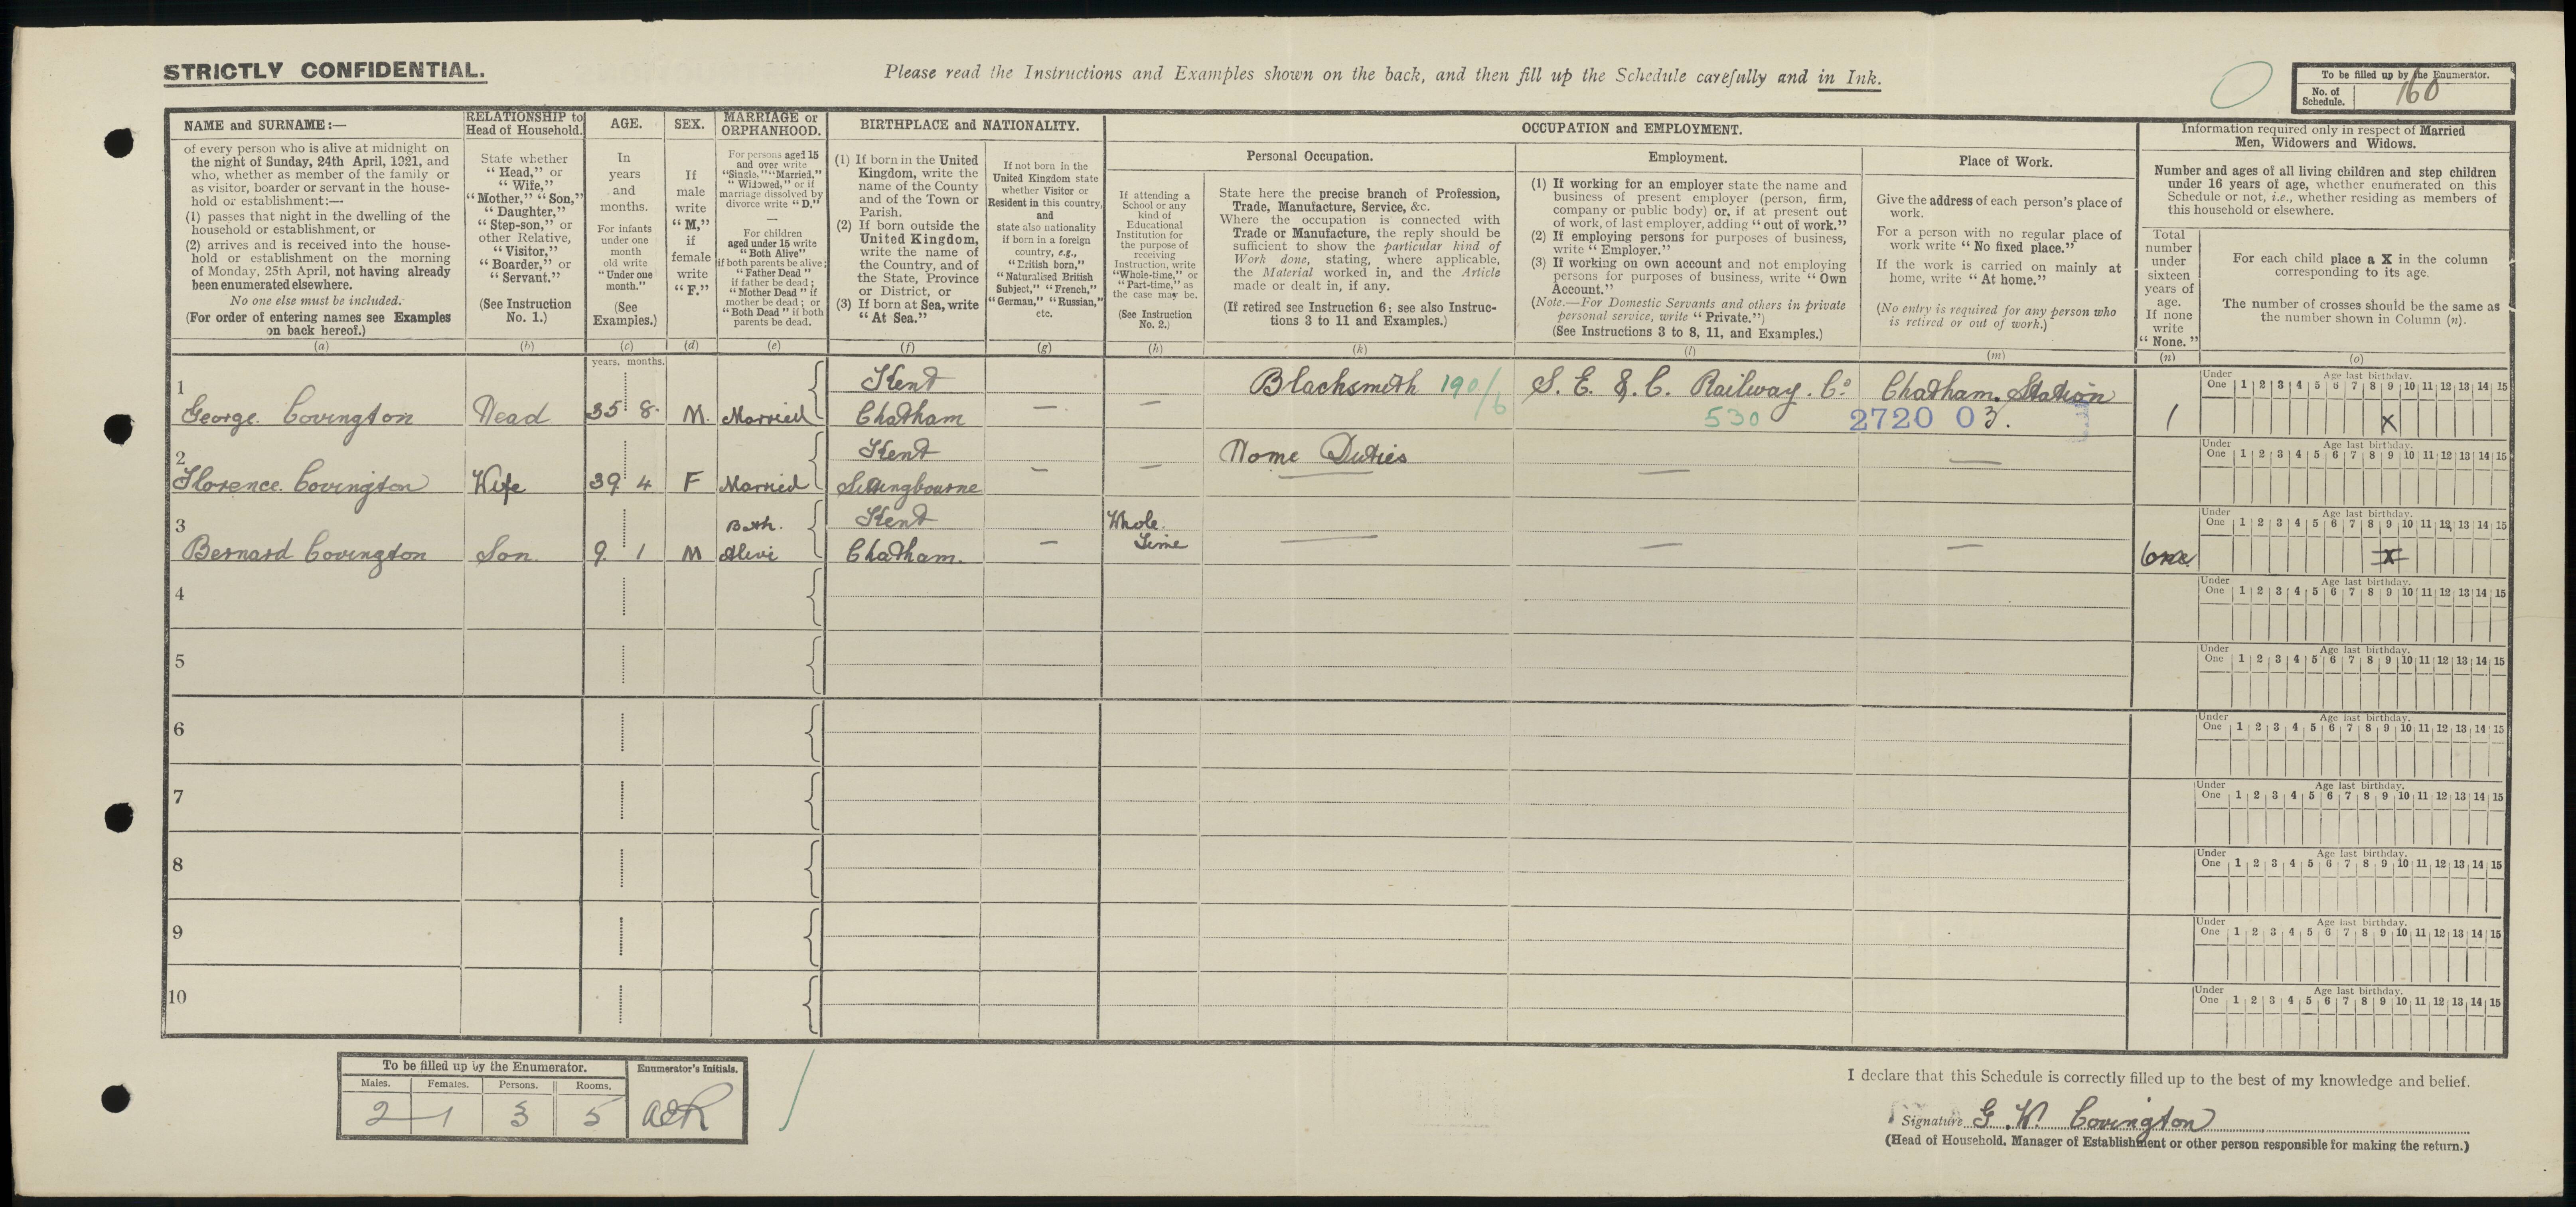 STRICTLY CONFIDENTIAL.
Please read the Instructions and Examples shown on the back, and then fill up the Schedule carefully and in Ink.
To be filled up by the Enumerator.
No. of Schedule. 160
NAME and SURNAME:—
of every person who is alive at midnight on
the night of Sunday, 24th April, 1921, and
who, whether as member of the family or
as visitor, boarder or servant in the house-
hold or establishment:—
(1) passes that night in the dwelling of the
household or establishment, or
(2) arrives and is received into the house-
hold or establishment on the morning
of Monday, 25th April, not having already
been enumerated elsewhere.
No one else must be included.
(For order of entering names see Examples
on back hereof.)
(a)
RELATIONSHIP to
Head of Household.
State whether
"Head," or
"Wife,"
"Mother," "Son,"
"Daughter,"
"Step-son," or
other Relative,
"Visitor,"
"Boarder," or
"Servant."
(See Instruction
No. 1.)
(b)
AGE.
In
years
and
months.
For infants
under one
month
old write
"Under one
month."
(See
Examples.)
(c)
SEX.
If
male
write
"M,"
if
female
write
"F."
(d)
MARRIAGE or
ORPHANHOOD.
For persons aged 15
and over write
"Single," "Married,"
"Widowed," or if
marriage dissolved by
divorce write "D."
—
For children
aged under 15 write
"Both Alive"
if both parents be alive;
"Father Dead"
if father be dead;
"Mother Dead" if
mother be dead; or
"Both Dead" if both
parents be dead.
(e)
BIRTHPLACE and NATIONALITY.
(1) If born in the United
Kingdom, write the
name of the County
and of the Town or
Parish.
(2) If born outside the
United Kingdom,
write the name of
the Country, and of
the State, Province
or District, or
(3) If born at Sea, write
"At Sea."
(f)
If not born in the
United Kingdom state
whether Visitor or
Resident in this country,
and
state also nationality
if born in a foreign
country, e.g.,
"British born,"
"Naturalised British
Subject," "French,"
"German," "Russian,"
etc.
(g)
OCCUPATION and EMPLOYMENT.
If attending a
School or any
kind of
Educational
Institution for
the purpose of
receiving
Instruction, write
"Whole-time," or
"Part-time," as
the case may be.
(See Instruction
No. 2.)
(h)
Personal Occupation.
State here the precise branch of Profession,
Trade, Manufacture, Service, &c.
Where the occupation is connected with
Trade or Manufacture, the reply should be
sufficient to show the particular kind of
Work done, stating, where applicable,
the Material worked in, and the Article
made or dealt in, if any.
(If retired see Instruction 6; see also Instruc-
tions 3 to 11 and Examples.)
(k)
Employment.
(1) If working for an employer state the name and
business of present employer (person, firm,
company or public body) or, if at present out
of work, of last employer, adding "out of work."
(2) If employing persons for purposes of business,
write "Employer."
(3) If working on own account and not employing
persons for purposes of business, write "Own
Account."
(Note.—For Domestic Servants and others in private
personal service, write "Private.")
(See Instructions 3 to 8, 11, and Examples.)
(l)
Place of Work.
Give the address of each person's place of
work.
For a person with no regular place of
work write "No fixed place."
If the work is carried on mainly at
home, write "At home."
(No entry is required for any person who
is retired or out of work.)
(m)
Information required only in respect of Married
Men, Widowers and Widows.
Number and ages of all living children and step children
under 16 years of age, whether enumerated on this
Schedule or not, i.e., whether residing as members of
this household or elsewhere.
Total
number
under
sixteen
years of
age.
If none
write
"None."
(n)
For each child place a X in the column
corresponding to its age.
The number of crosses should be the same as
the number shown in Column (n).
(o)
years. months.
1 George. Covington Head 35 8. M. Married Kent Chatham — — Blacksmith 190/6 S. E. & C. Railway. Co 530 Chatham. Station 2720 03. 1 X
Under One Age last birthday. 1 2 3 4 5 6 7 8 9 10 11 12 13 14 15
2 Florence. Covington Wife 39 4 F Married Kent Sittingbourne — — Home Duties — —
Under One Age last birthday. 1 2 3 4 5 6 7 8 9 10 11 12 13 14 15
3 Bernard Covington Son. 9. 1 M Both. Alive Kent Chatham. — Whole. Time — — — One. X
Under One Age last birthday. 1 2 3 4 5 6 7 8 9 10 11 12 13 14 15
4
Under One Age last birthday. 1 2 3 4 5 6 7 8 9 10 11 12 13 14 15
5
Under One Age last birthday. 1 2 3 4 5 6 7 8 9 10 11 12 13 14 15
6
Under One Age last birthday. 1 2 3 4 5 6 7 8 9 10 11 12 13 14 15
7
Under One Age last birthday. 1 2 3 4 5 6 7 8 9 10 11 12 13 14 15
8
Under One Age last birthday. 1 2 3 4 5 6 7 8 9 10 11 12 13 14 15
9
Under One Age last birthday. 1 2 3 4 5 6 7 8 9 10 11 12 13 14 15
10
Under One Age last birthday. 1 2 3 4 5 6 7 8 9 10 11 12 13 14 15
To be filled up by the Enumerator.
Males. Females. Persons. Rooms.
2 1 3 5
Enumerator's Initials.
I declare that this Schedule is correctly filled up to the best of my knowledge and belief.
Signature G. W. Covington
(Head of Household, Manager of Establishment or other person responsible for making the return.)